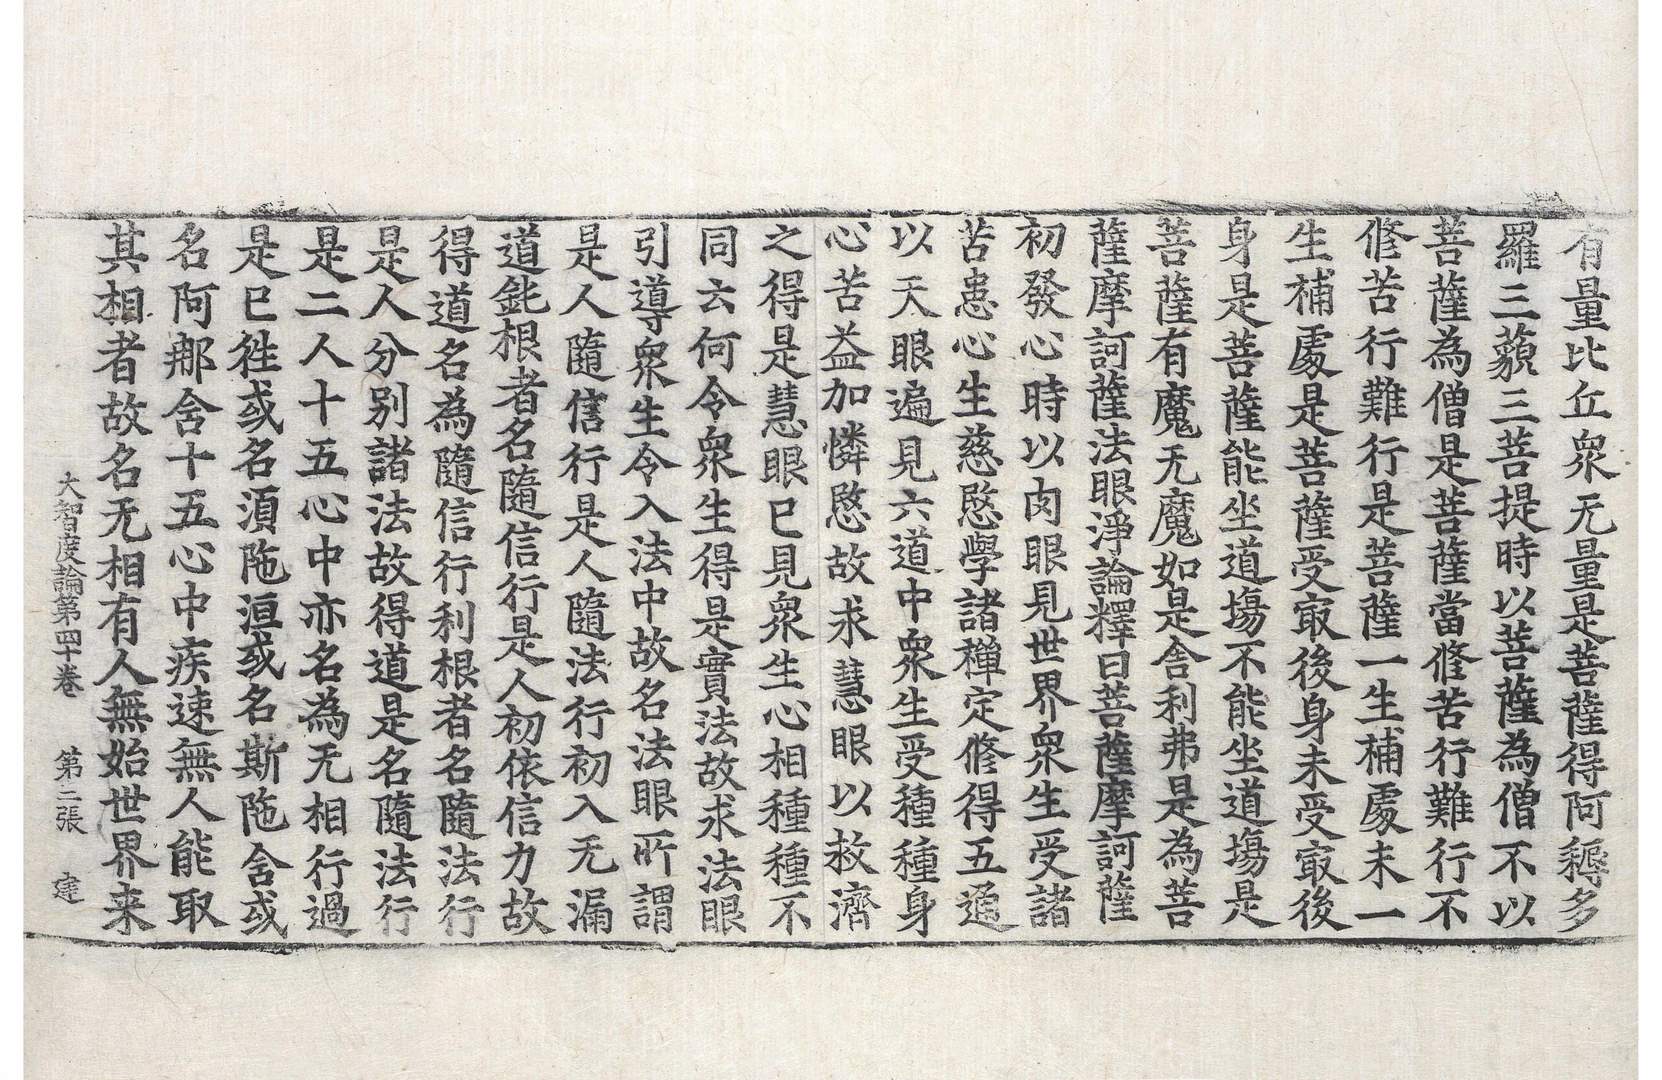 有量比丘衆无量是菩薩得阿耨多
羅三藐三菩提時以菩薩為僧不以
菩薩為僧是菩薩當修苦行難行不
修苦行難行是菩薩一生補處未一
生補處是菩薩受㝡後身未受㝡後
身是菩薩能坐道場不能坐道場是
菩薩有魔无魔如是舍利弗是為菩
薩摩訶薩法眼淨論釋曰菩薩摩訶薩
初發心時以肉眼見世界衆生受諸
苦患心生慈愍學諸禪定修得五通
以天眼遍見六道中衆生受種種身
心苦益加憐愍故求慧眼以救濟
之得是慧眼已見衆生心相種種不
同云何令衆生得是實法故求法眼
引導衆生令入法中故名法眼所謂
是人隨信行是人隨法行初入无漏
道鈍根者名隨信行是人初依信力故
得道名為隨信行利根者名隨法行
是人分別諸法故得道是名隨法行
是二人十五心中亦名為无相行過
是已往或名湏陁洹或名斯陁含或
名阿那舍十五心中疾速無人能取
其相者故名无相有人無始世界来
大智度論第四十卷 第二張 建